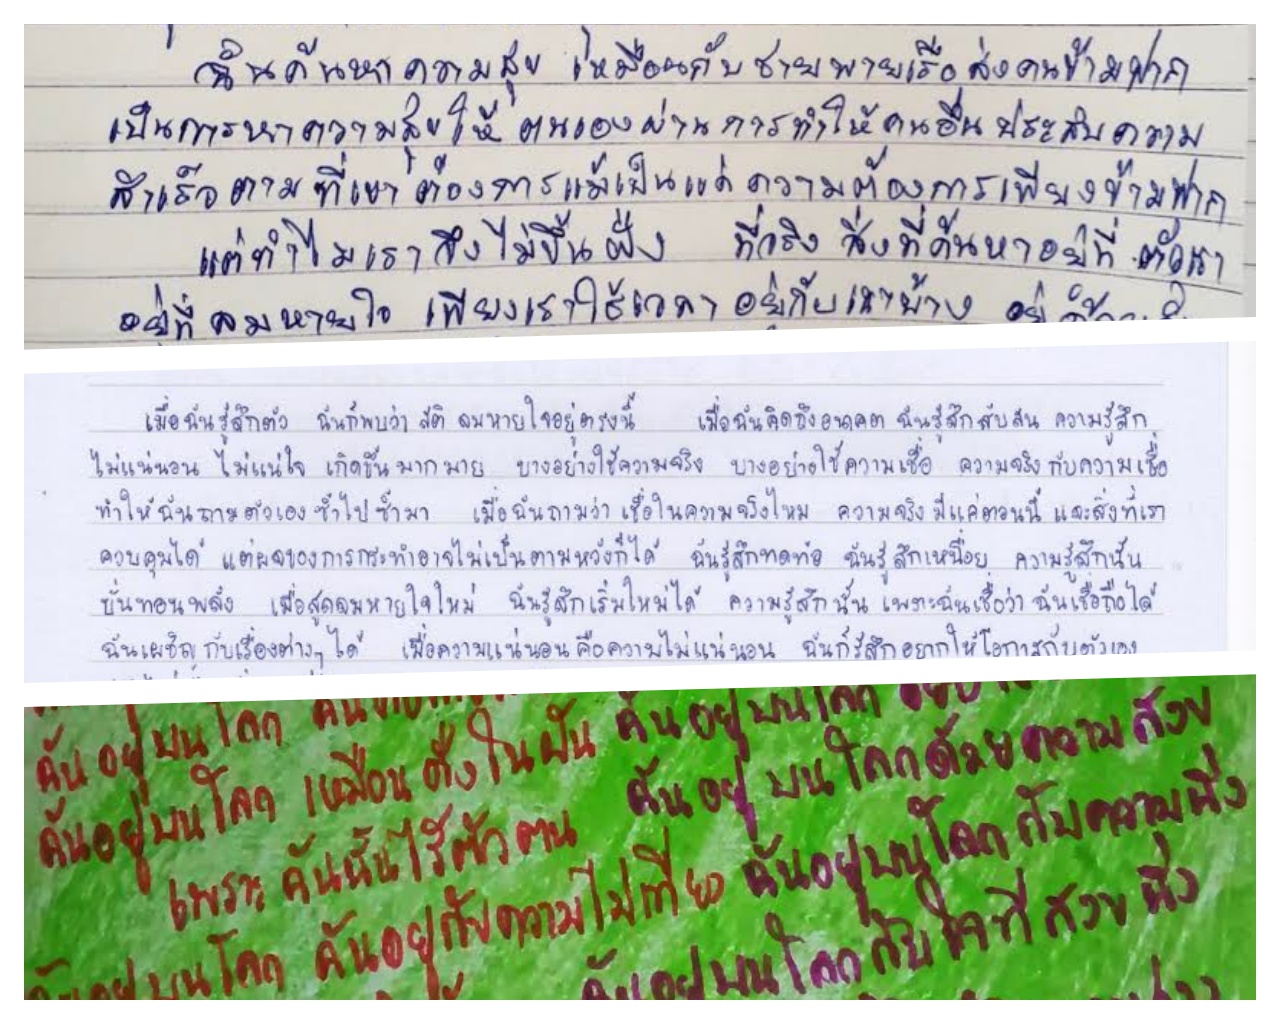 ฉันค้นหาความสุข เหมือนกับชายพายเรือส่งคนข้ามฟาก
เป็นการหาความสุขให้ตนเองผ่านการทำให้คนอื่นประสบความ
สำเร็จตามที่เขาต้องการแม้เป็นแค่ความต้องการเพียงข้ามฟาก
แต่ทำไมเราจึงไม่ขึ้นฝั่ง ที่จริง สิ่งที่ค้นหาอยู่ที่ตัวเรา
อยู่ที่ลมหายใจ เพียงเราใช้เวลาอยู่กับเขาบ้าง
เมื่อฉันรู้สึกตัว ฉันก็พบว่า สติ ลมหายใจอยู่ตรงนี้ เมื่อฉันคิดถึงอนาคต ฉันรู้สึกสับสน ความรู้สึก
ไม่แน่นอน ไม่แน่ใจ เกิดขึ้นมากมาย บางอย่างใช้ความจริง บางอย่างใช้ความเชื่อ ความจริงกับความเชื่อ
ทำให้ฉันถามตัวเองซ้ำไปซ้ำมา เมื่อฉันถามว่า เชื่อในความจริงไหม ความจริงมีแค่ตอนนี้ และสิ่งที่เรา
ควบคุมได้ แต่ผลของการกระทำอาจไม่เป็นตามหวังก็ได้ ฉันรู้สึกทดท้อ ฉันรู้สึกเหนื่อย ความรู้สึกนั้น
บั่นทอนพลัง เมื่อสูดลมหายใจใหม่ ฉันรู้สึกเริ่มใหม่ได้ ความรู้สึกนั้น เพราะฉันเชื่อว่า ฉันเชื่อถือได้
ฉันเผชิญกับเรื่องต่างๆ ได้ เมื่อความแน่นอนคือความไม่แน่นอน ฉันก็รู้สึกอยากให้โอกาสกับตัวเอง
ฉันอยู่บนโลก
ฉันอยู่บนโลก เหมือนดั่งในฝัน ฉันอยู่บนโลก
เพราะ ฉันนั้นไร้ตัวตน ฉันอยู่บนโลกด้วยความสงบ
ฉันอยู่บนโลกกับความนิ่ง
บนโลก ฉันอยู่กับความไม่เที่ยง
ฉันอยู่บนโลกกับใจที่สงบ นิ่ง